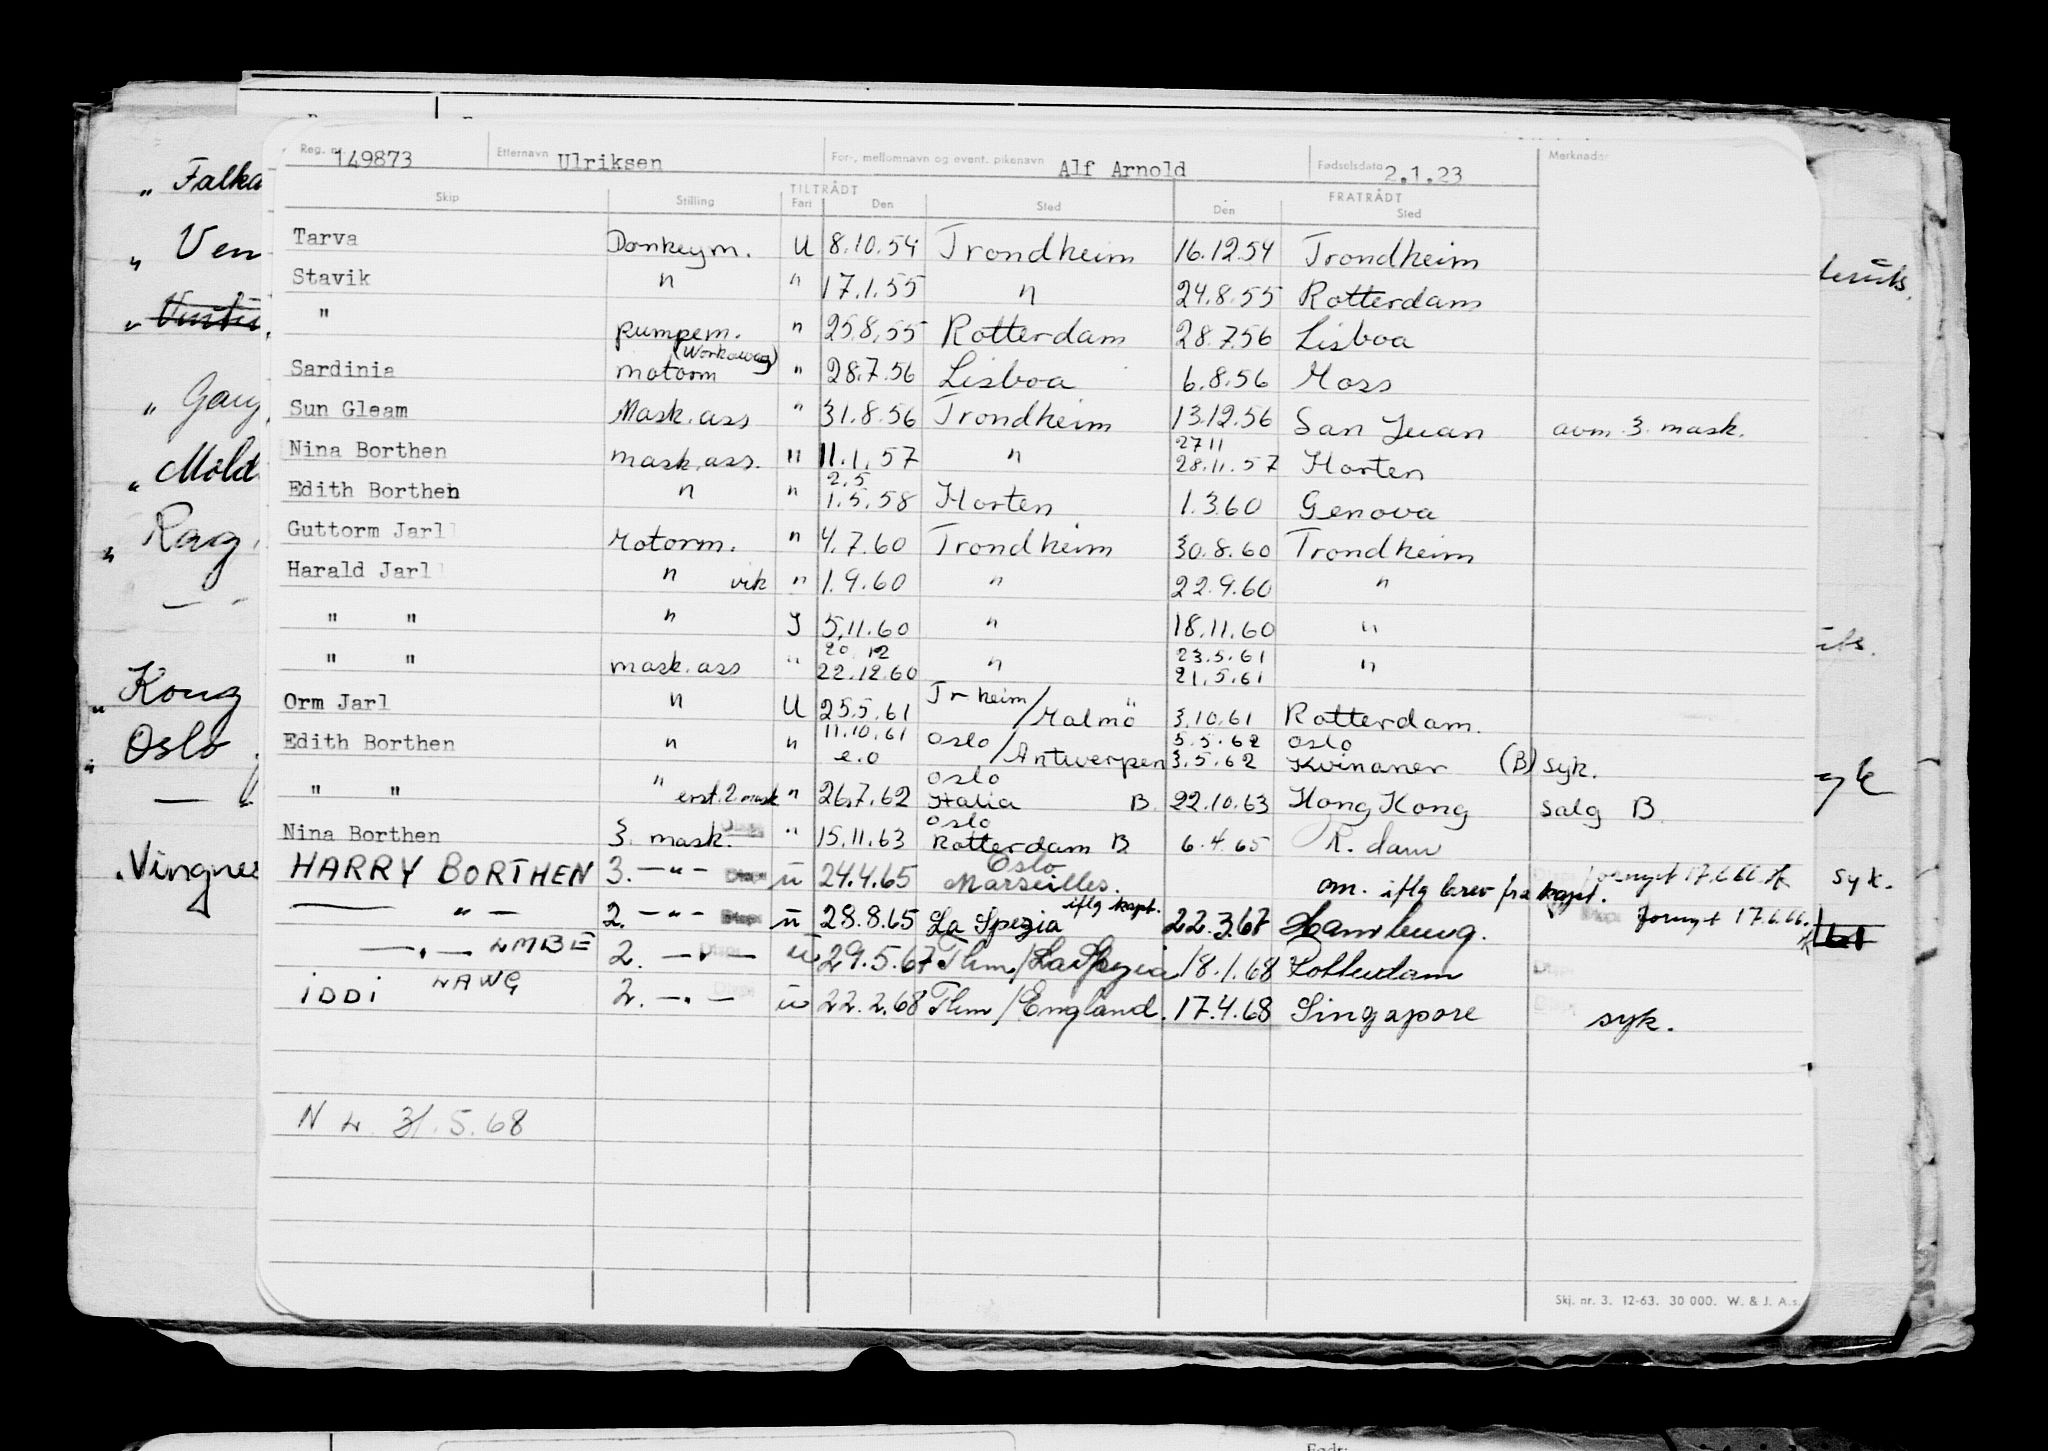 Reg. nr. 149873 Etternavn Ulriksen For-, mellomnavn og event. pikenavn Alf Arnold Fødselsdato 2.1.23 Merknader
TILTRÅDT FRATRÅDT
Skip Stilling Fart Den Sted Den Sted
Tarva Donkeym. U 8.10.54 Trondheim 16.12.54 Trondheim
Stavik " " 17.1.55 " 24.8.55 Rotterdam
" pumpem. " 25.8.55 Rotterdam 28.7.56 Lisboa
Sardinia (Workaway) motorm " 28.7.56 Lisboa 6.8.56 Moss
Sun Gleam Mask.ass " 31.8.56 Trondheim 13.12.56 San Juan avm. 3. mask.
Nina Borthen mask.ass. " 11.1.57 " 27 11 28.11.57 Horten
Edith Borthen " " 2.5 1.5.58 Horten 1.3.60 Genova
Guttorm Jarl Motorm. " 4.7.60 Trondheim 30.8.60 Trondheim
Harald Jarl " vik " 1.9.60 " 22.9.60 "
" " " I 5.11.60 " 18.11.60 "
" " mask.ass " 20.12 22.12.60 " 23.5.61 21.5.61 "
Orm Jarl " U 25.5.61 Tr heim/Malmö 3.10.61 Rotterdam.
Edith Borthen " " 11.10.61 e.o Oslo/Antwerpen 5.5.62 3.5.62 Oslo Kvinaner (B) syk.
" " " erst. 2 mask " 26.7.62 Oslo Italia B. 22.10.63 Hong Kong salg B.
Nina Borthen 3. mask. " 15.11.63 Oslo Rotterdam B 6.4.65 R.dam
HARRY BORTHEN 3. —"— u 24.4.65 Oslo Marseilles. om. iflg brev fra kapt. fornyet 17.6.66.
— " — 2. —"— u 28.8.65 La Spezia iflg kapt. 22.3.67 Hamburg. fornyet 17.6.66.
—"— LMBE 2. —"— u 29.5.67 Thm/La Spezia 18.1.68 Rotterdam
IDDI LAWG 2. —"— u 22.2.68 Thm/England. 17.4.68 Singapore syk.
N L. 31.5.68
Skj. nr. 3. 12-63. 30 000. W. & J. A.s.
" Falka
" Ven
"
" Mold
" Rag
" Kong
" Oslo
" Vingnes
syk.